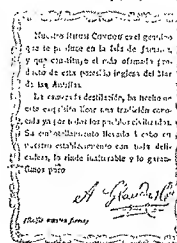 Nuestro Rhum Cowdoy es el genuino
que se produce en la Isla de Jamaica,
y que constituye el más afamado pro-
ducto de esta posesión inglesa del Mar
de las Antillas.
La esmerada destilación, ha hecho de
este exquisito licor una tradición cono-
cida ya por todos los pueblos civilizados.
Su embotellamiento llevado á cabo en
nuestro establecimiento con toda deli-
cadeza, lo rinde inalterable y lo garan-
timos puro